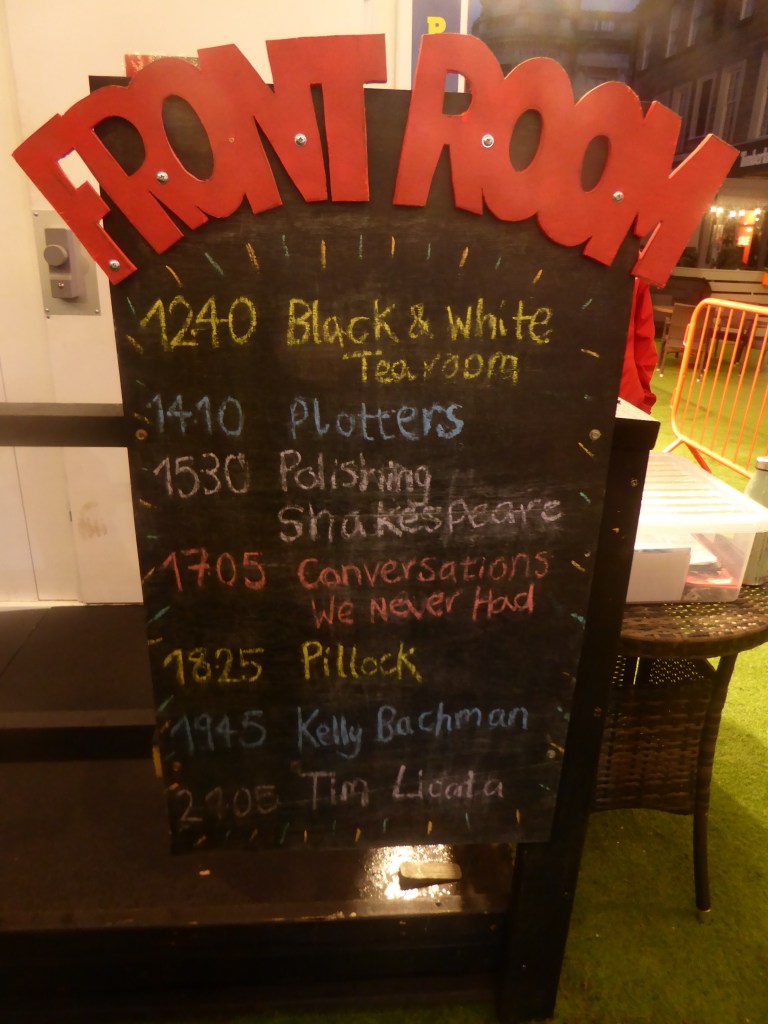 FRONT ROOM
1240 Black & White
Tearoom
1410 Plotters
1530 Polishing
Shakespeare
1705 Conversations
We Never Had
1825 Pillock
1945 Kelly Bachman
2105 Tim Licata